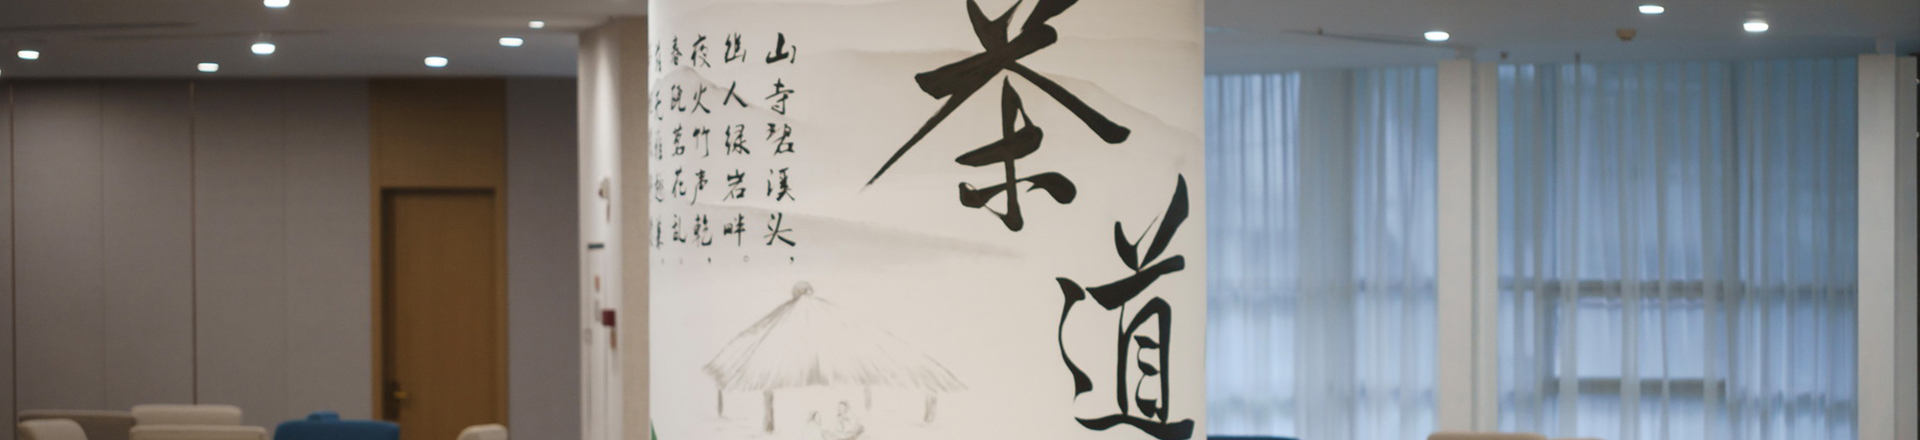 茶道
山寺碧溪头，
幽人绿岩畔。
夜火竹声乾，
春瓯茗花乱。